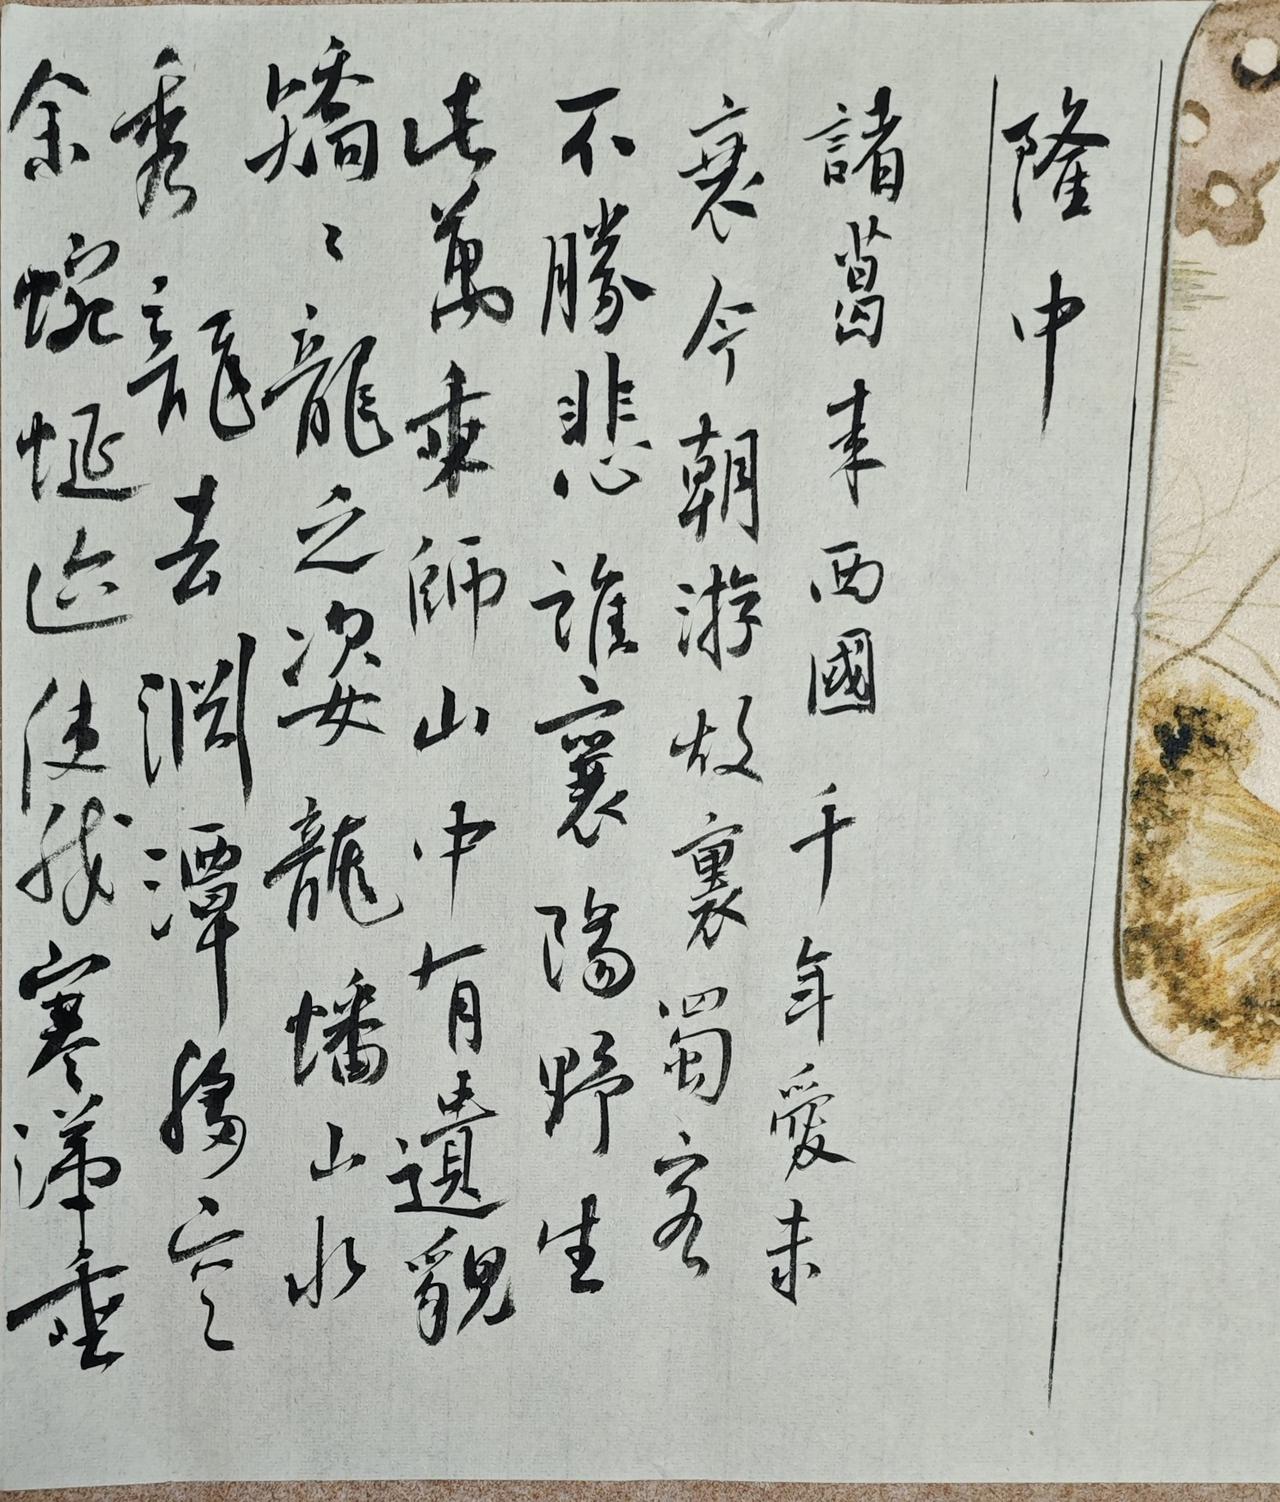 隆中
諸葛来西國千年愛未
衰今朝游故裏蜀客
不勝悲誰襄陽野生
此萬乘師山中有遺貌
矯〻龍之姿龍蟠山水
秀龍去淵潭移空
余蜿蜒迹使我寒涕垂